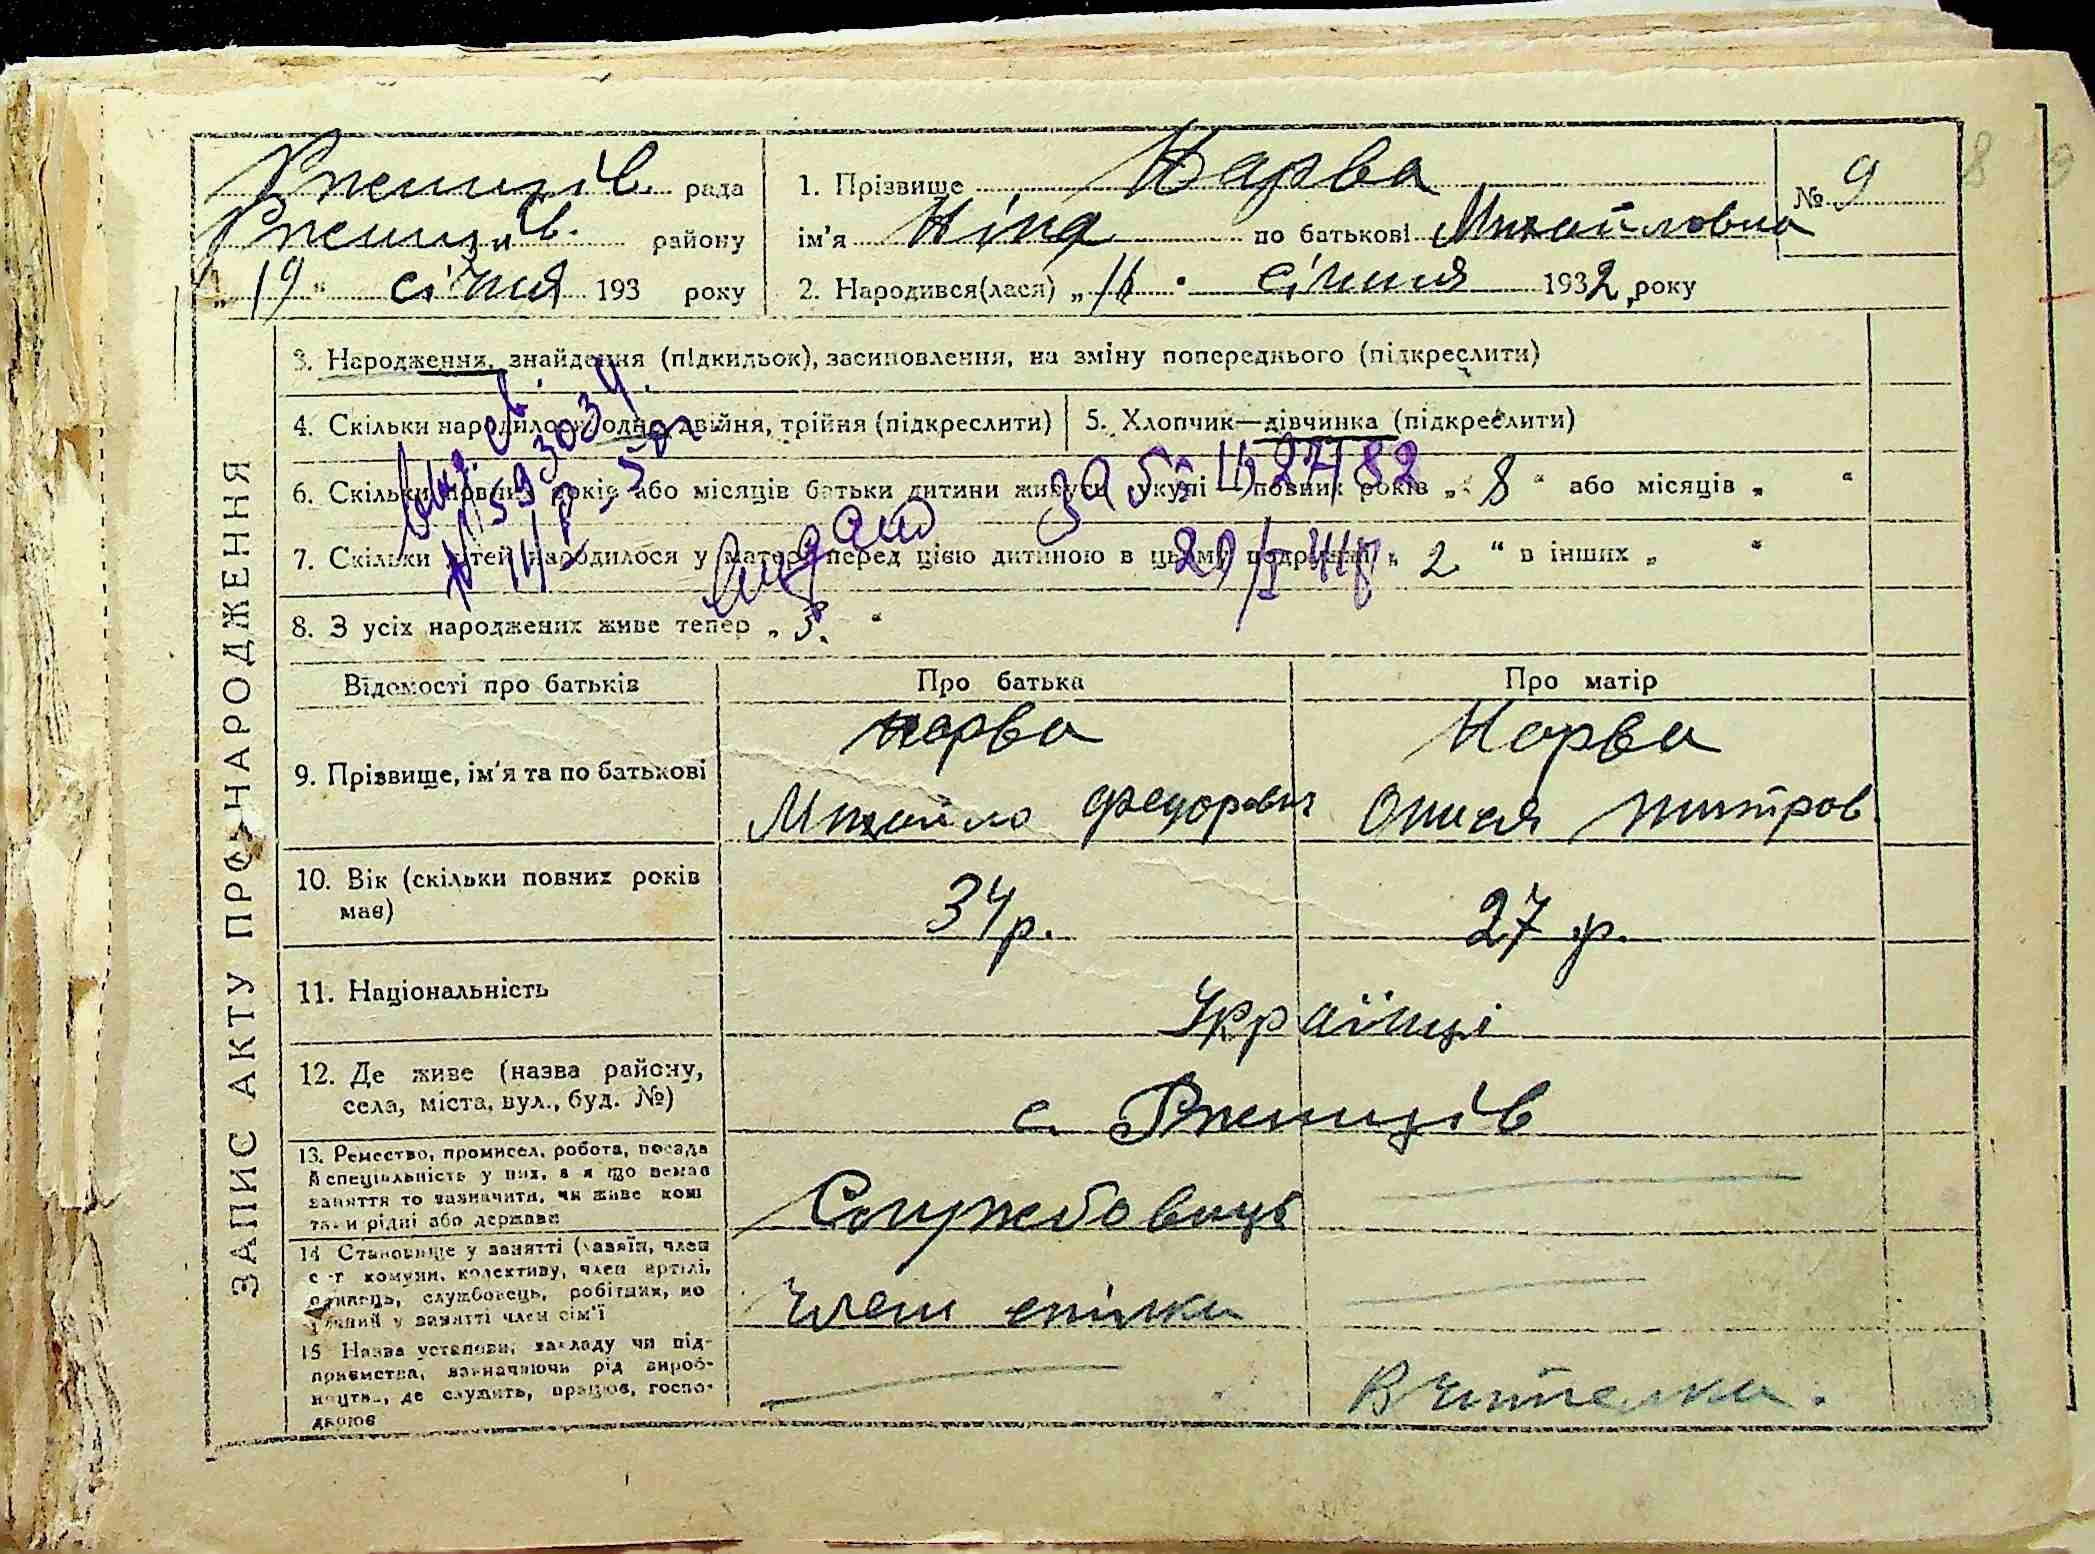 Ржищів. рада
Ржищів. району
„ 19 “ січня 193 року
1. Прізвище Нарва
№ 9
ім'я Ніна по батькові Михайловна
2. Народився(лася) „ 16 “ січня 1932 року
3. Народження, знайдення (підкидьок), засиновлення, на зміну попереднього (підкреслити)
4. Скільки народилося: одно, двійня, трійня (підкреслити)
5. Хлопчик—дівчинка (підкреслити)
6. Скільки повних років або місяців батьки дитини живуть укупі — повних років „ 8 “ або місяців „ “
7. Скільки дітей народилося у матери перед цією дитиною в цьому подружжі „ 2 “ в інших „ “
8. З усіх народжених живе тепер „ 3. “
Видано за БЮ 27482
29/I 44р
ЗАПИС АКТУ ПРО НАРОДЖЕННЯ
Відомості про батьків
Про батька
Про матір
9. Прізвище, ім'я та по батькові
Нарва
Михайло Федорович
Нарва
Онися Дмитров
10. Вік (скільки повних років має)
34 р.
27 р.
11. Національність
Українці
12. Де живе (назва району, села, міста, вул., буд. №)
с. Ржищів
13. Ремество, промисел, робота, посада й спеціяльність у них, а якщо немає заняття то зазначити, чи живе коштами рідні або держави
Службовець
14 Становище у занятті (хазяїн, член с-г комуни, колективу, член артілі, одинець, службовець, робітник, член сім'ї
Член спілки
15 Назва установи, закладу чи підприємства, зазначаючи рід виробництва, де служить, працює, господарює
Вчителка.